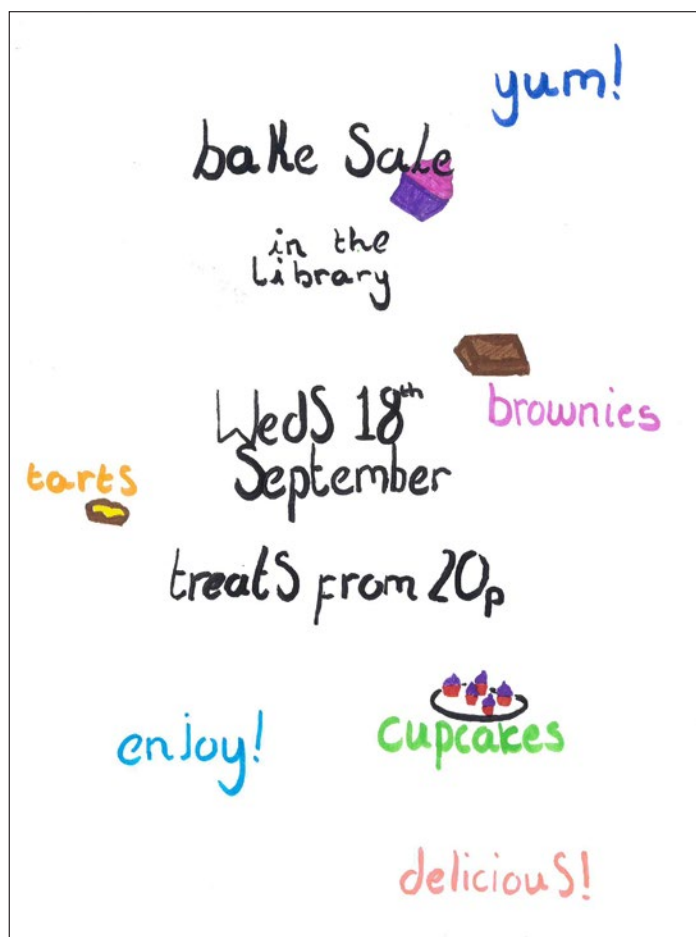 yum!
bake Sale
in the
Library
brownies
Weds 18th
September
tarts
treats from 20p
cupcakes
enjoy!
delicious!